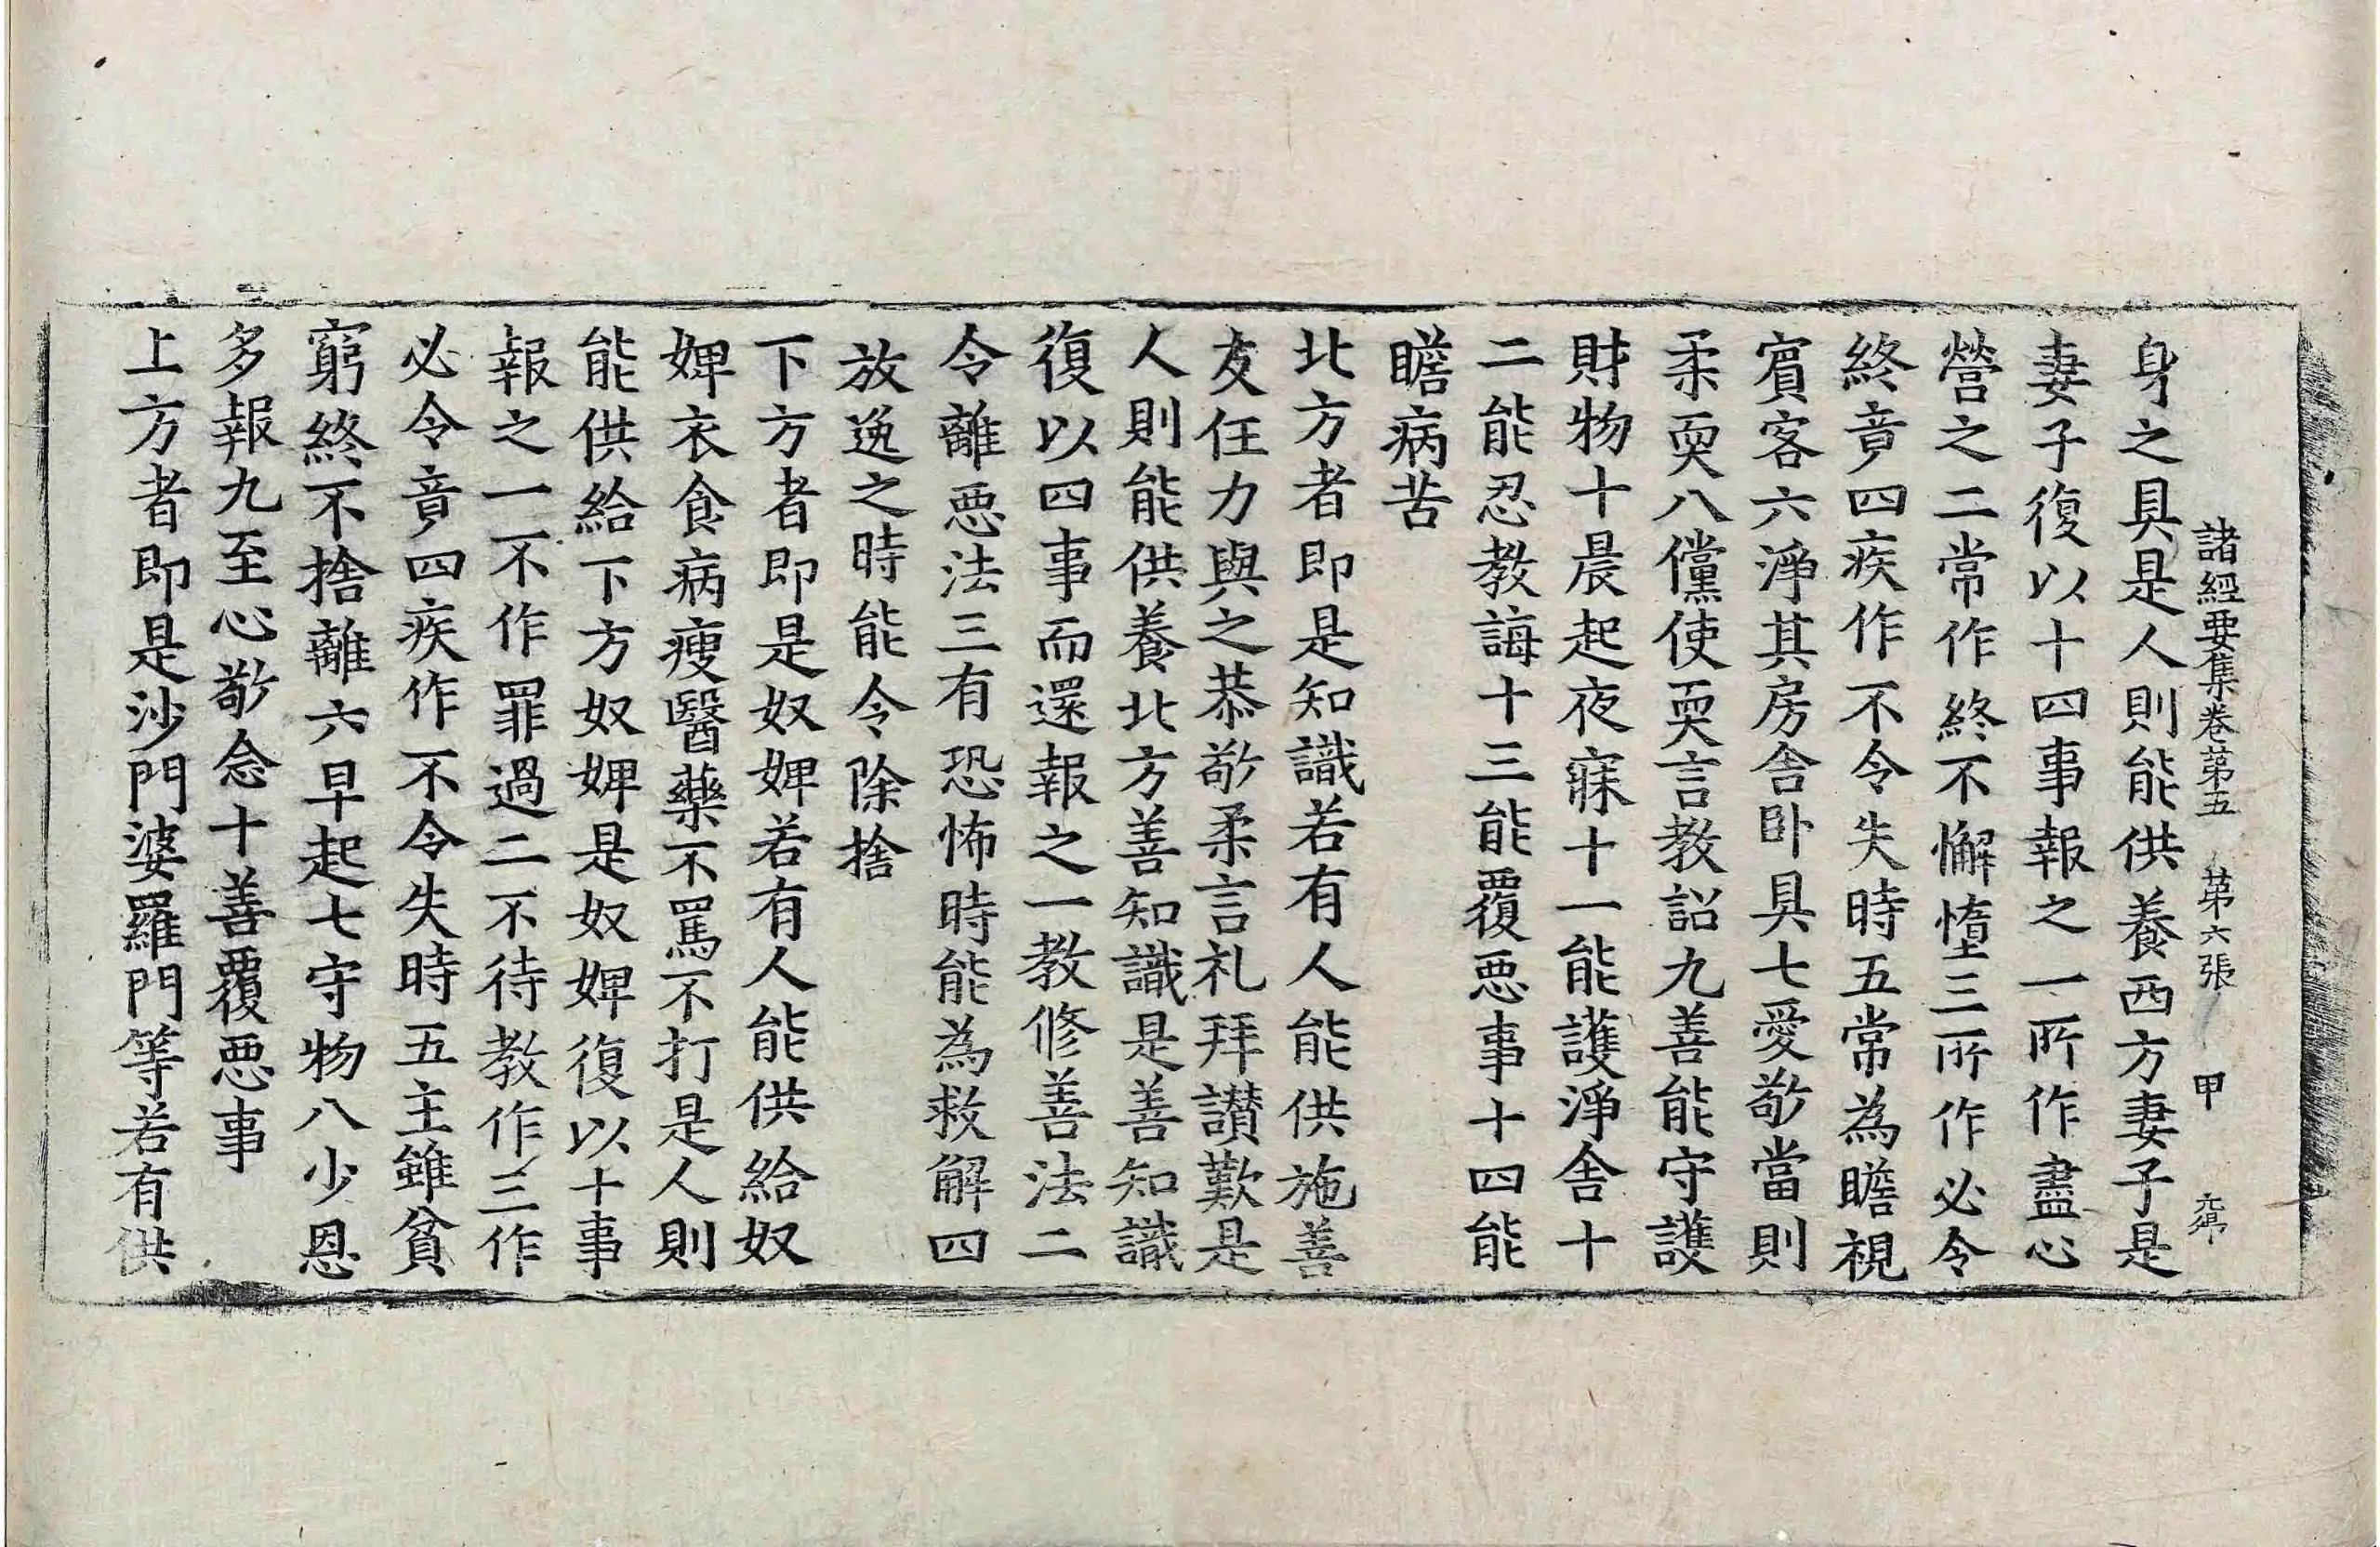 諸經要集卷第五 第六張 甲
身之具是人則能供養西方妻子是
妻子復以十四事報之一所作盡心
營之二常作終不懈惰三所作必令
終竟四疾作不令失時五常為瞻視
賓客六淨其房舍卧具七愛敬當則
柔耎八僮使耎言教詔九善能守護
財物十晨起夜寐十一能護淨舍十
二能忍教誨十三能覆惡事十四能
瞻病苦
北方者即是知識若有人能供施善
友任力與之恭敬柔言礼拜讃歎是
人則能供養北方善知識是善知識
復以四事而還報之一教修善法二
令離惡法三有恐怖時能為救解四
放逸之時能令除捨
下方者即是奴婢若有人能供給奴
婢衣食病瘦醫藥不罵不打是人則
能供給下方奴婢是奴婢復以十事
報之一不作罪過二不待教作三作
必令竟四疾作不令失時五主雖貧
窮終不捨離六早起七守物八少恩
多報九至心敬念十善覆惡事
上方者即是沙門婆羅門等若有供